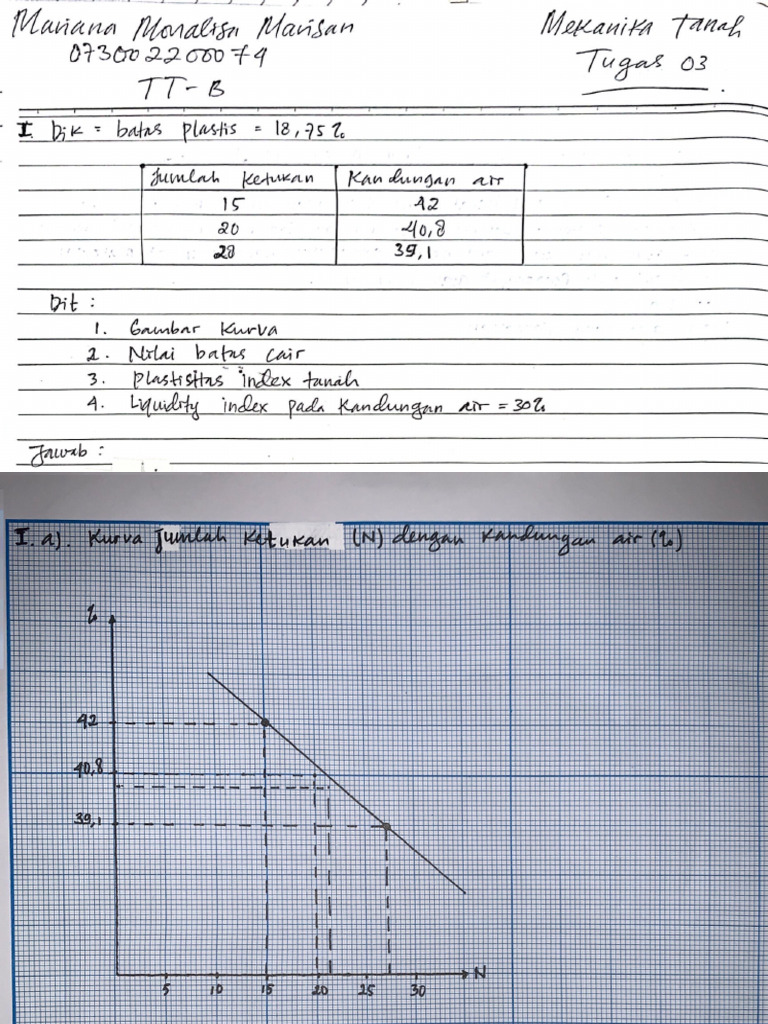 Mariana Monalisa Marisan
Mekanika Tanah
07300220074
Tugas 03
TT-B
I. Dik = batas plastis = 18,75%
Jumlah Ketukan Kandungan air
15 42
20 40,8
28 39,1
Dit :
1. Gambar Kurva
2. Nilai batas cair
3. Plastisitas index tanah
4. Liquidity index pada Kandungan air = 30%
Jawab :
I. a). Kurva Jumlah Ketukan (N) dengan Kandungan air (%)
%
42
40,8
39,1
N
5 10 15 20 25 30